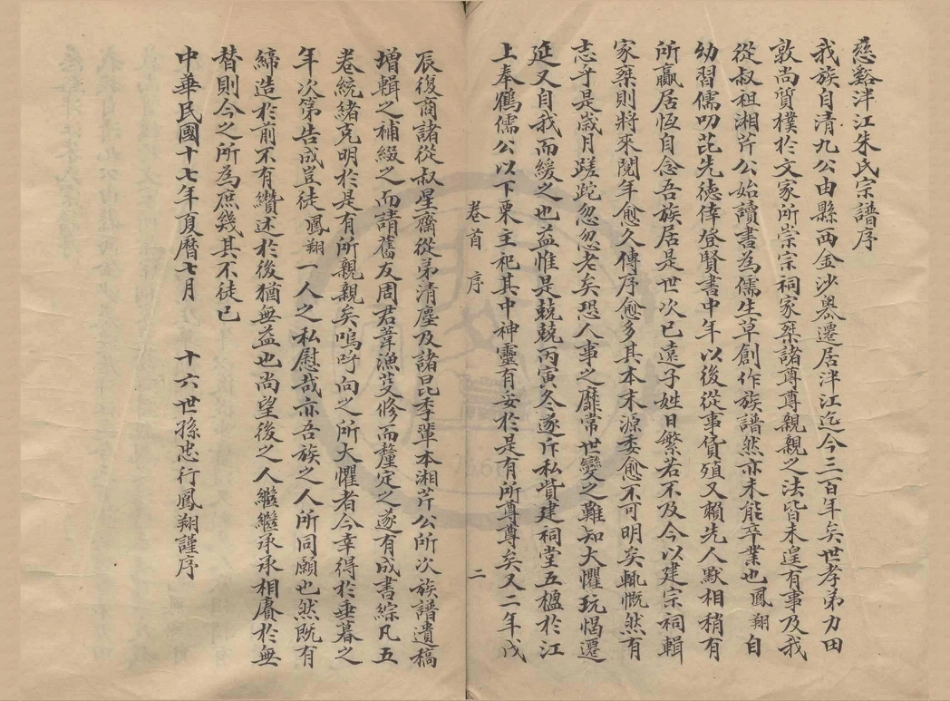 慈谿泮江朱氏宗譜序
我族自清九公由縣西金沙嶴遷居泮江迄今三百年矣世孝弟力田
敦尚質樸於文家所崇宗祠家乘諸尊尊親親之法皆未遑有事及我
從叔祖湘芹公始讀書為儒生草創作族譜然亦未能卒業也鳳翔自
幼習儒叨芘先德倖登賢書中年以後從事貨殖又賴先人默相稍有
所贏居恆自念吾族居是世次已遠子姓日繁若不及今以建宗祠輯
家乘則將來閱年愈久傳序愈多其本末源委愈不可明矣輒慨然有
志乎是歲月蹉跎忽忽老矣恐人事之靡常世變之難知大懼玩愒遷
延又自我而緩之也益惟是兢兢丙寅冬遂斥私貲建祠堂五楹於江
上奉鶴儒公以下栗主祀其中神靈有妥於是有所尊尊矣又二年戊
卷首 序 二
辰復商諸從叔星齋從弟清塵及諸昆季輩本湘芹公所次族譜遺稿
增輯之補綴之而請舊友周君葦漁芟修而釐定之遂有成書綜凡五
卷統緒克明於是有所親親矣嗚呼向之所大懼者今幸得於垂暮之
年次第告成豈徒鳳翔一人之私慰哉亦吾族之人所同願也然既有
締造於前不有纘述於後猶無益也尚望後之人繼繼承承相賡於無
替則今之所為庶幾其不徒已
中華民國十七年夏曆七月 十六世孫忠行鳳翔謹序